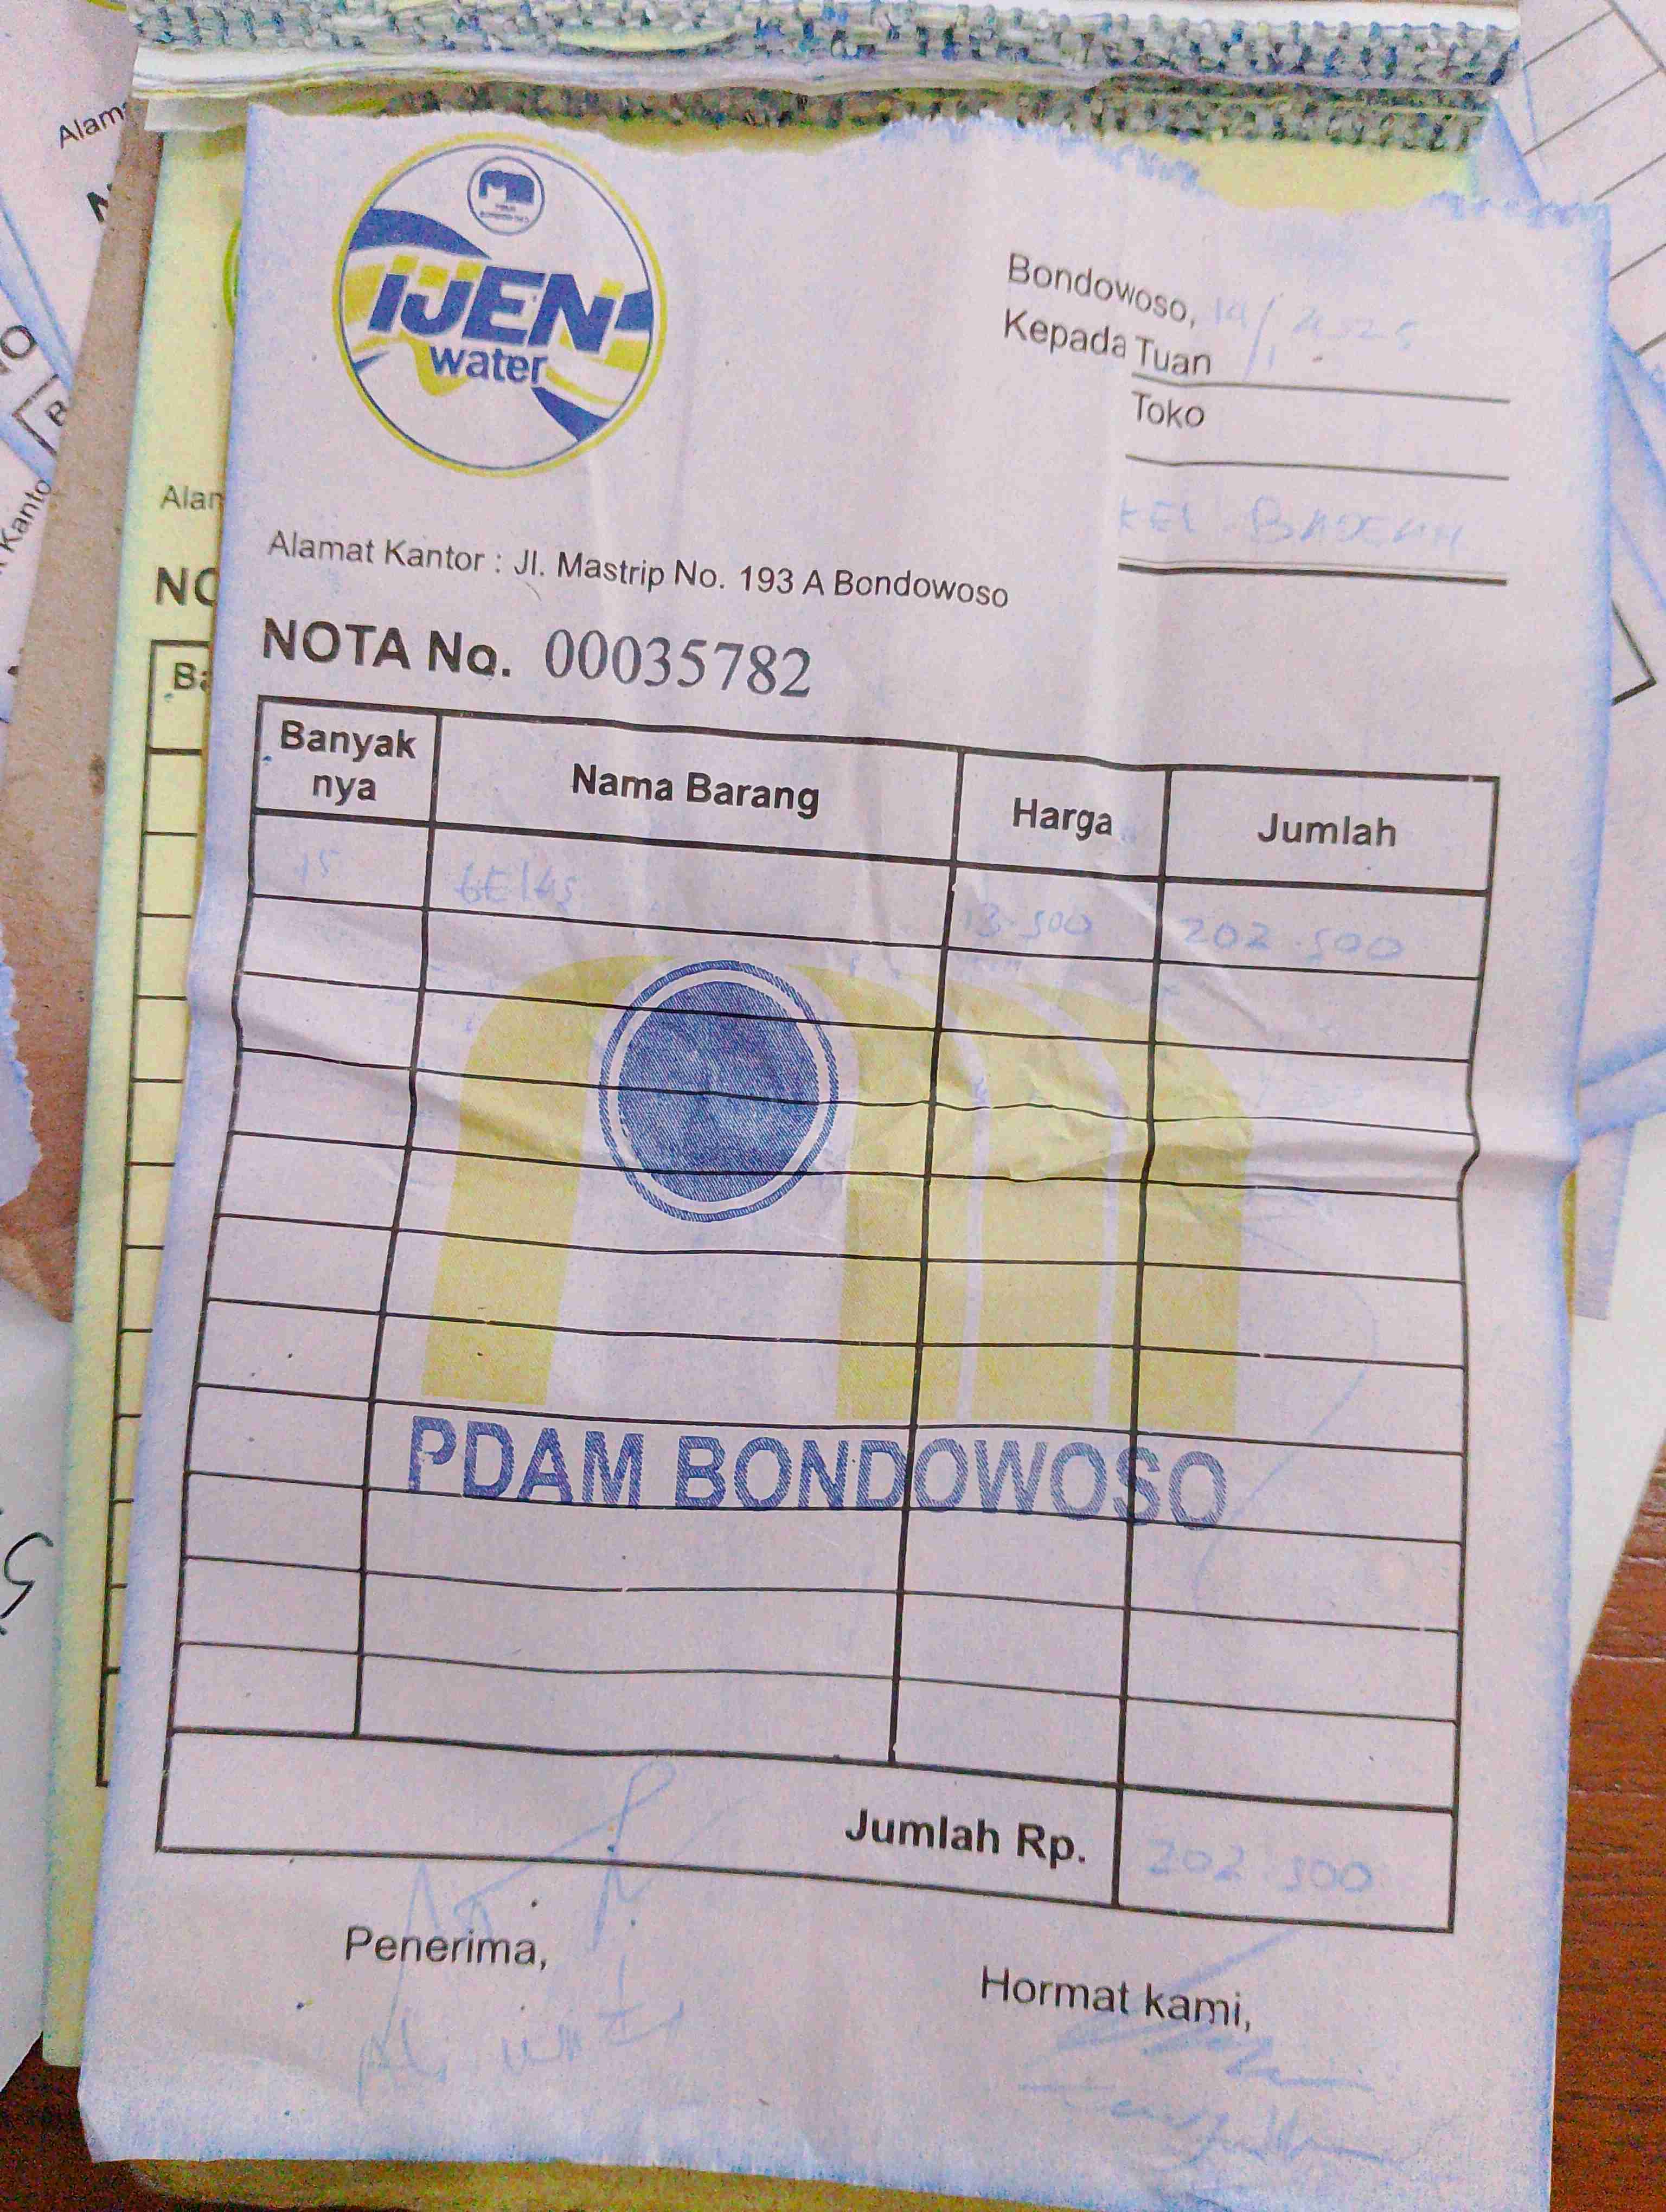 IJEN
water
Bondowoso, 14/1 2025
Kepada Tuan
Toko
KEL BADEAN
Alamat Kantor : Jl. Mastrip No. 193 A Bondowoso
NOTA No. 00035782
Banyak nya Nama Barang Harga Jumlah
15 GELAS 13.500 202.500
PDAM BONDOWOSO
Jumlah Rp. 202.500
Penerima,
Hormat kami,